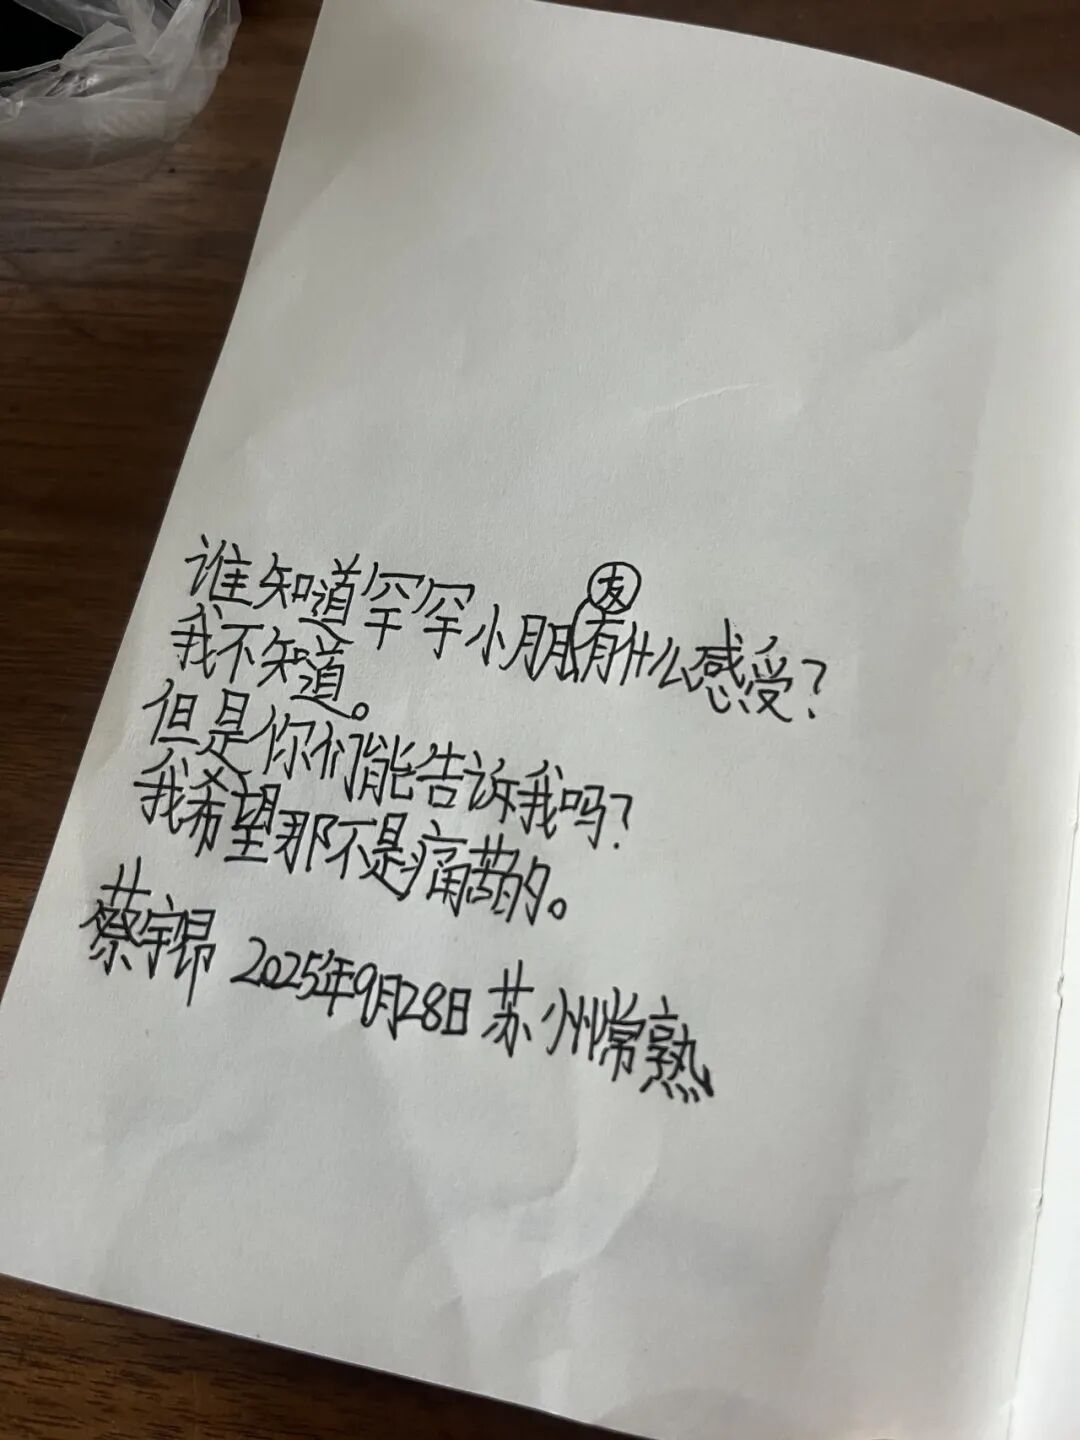 谁知道罕罕小朋友有什么感受？
我不知道。
但是你们能告诉我吗？
我希望那不是痛苦的。
蔡宇昂 2025年9月28日 苏州常熟